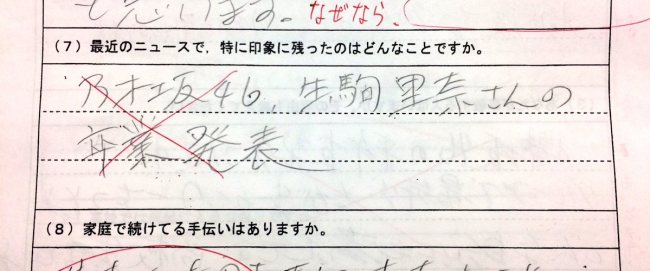 と思います。なぜなら、
(7) 最近のニュースで，特に印象に残ったのはどんなことですか。
乃木坂46 生駒里奈さんの
卒業発表
(8) 家庭で続けてる手伝いはありますか。